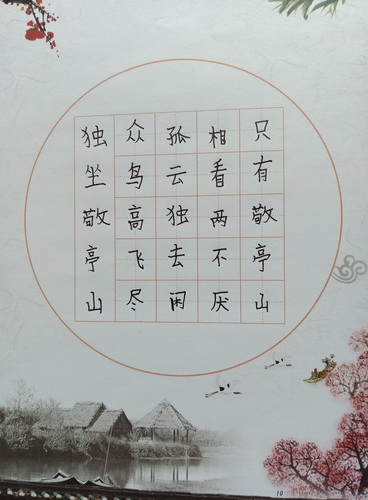 独坐敬亭山
众鸟高飞尽
孤云独去闲
相看两不厌
只有敬亭山
10